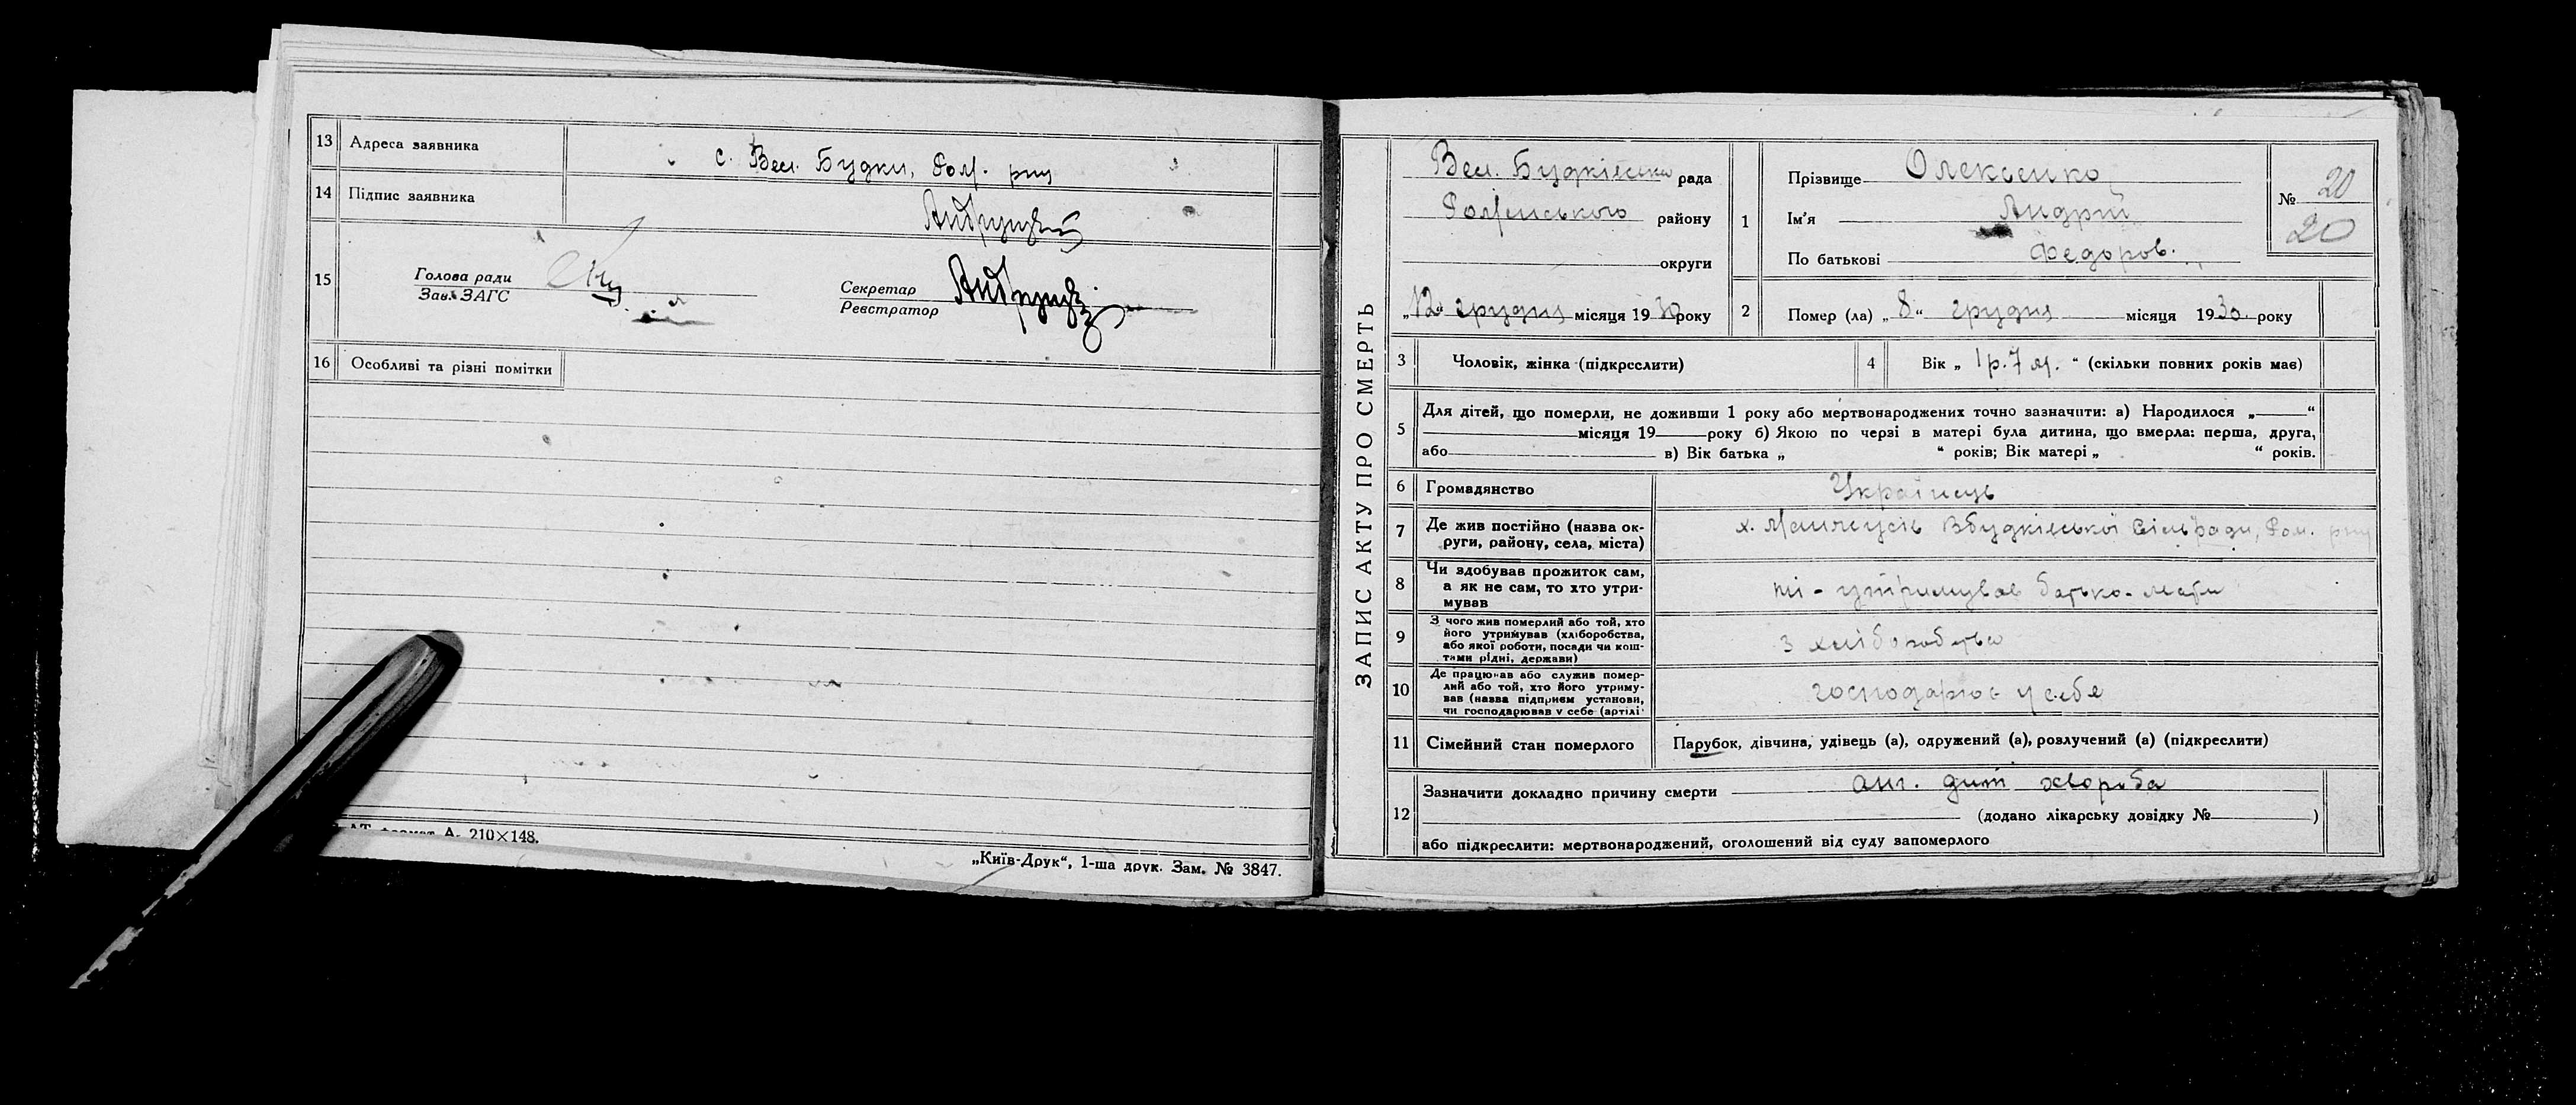 13 Адреса заявника с. Вел. Будки, Ром. р-ну
14 Підпис заявника
15 Голова ради
Зав. ЗАГС
Секретар
Реєстратор
16 Особливі та різні помітки
210×148.
„Київ-Друк“, 1-ша друк. Зам. № 3847.
ЗАПИС АКТУ ПРО СМЕРТЬ
Вел. Будківська рада
Роменського району
округи
„12“ грудня місяця 1930 року
1 Прізвище Олексенко
Ім'я Андрій
По батькові Федоров.
№ 20
20
2 Помер (ла) „8“ грудня місяця 1930 року
3 Чоловік, жінка (підкреслити)
4 Вік „ 1 р. 7 м. “ (скільки повних років має)
5 Для дітей, що померли, не доживши 1 року або мертвонароджених точно зазначити: а) Народилося „ “
місяця 19 року б) Якою по черзі в матері була дитина, що вмерла: перша, друга,
або в) Вік батька „ “ років; Вік матері „ “ років.
6 Громадянство Українець
7 Де жив постійно (назва ок-
руги, району, села, міста)
х. В будківської Сільради, Ром. р-ну
8 Чи здобував прожиток сам,
а як не сам, то хто утри-
мував
ні - утримував батько - мати
9 З чого жив померлий або той, хто
його утримував (хліборобства,
або якої роботи, посади чи кош-
тами рідні, держави)
з хліборобства
10 Де працював або служив помер-
лий або той, хто його утриму-
вав (назва підприєм установи,
чи господарював у себе (артілі
господарює у себе
11 Сімейний стан померлого Парубок, дівчина, удівець (а), одружений (а), розлучений (а) (підкреслити)
12 Зазначити докладно причину смерти анг. дит хвороба
(додано лікарську довідку № )
або підкреслити: мертвонароджений, оголошений від суду запомерлого